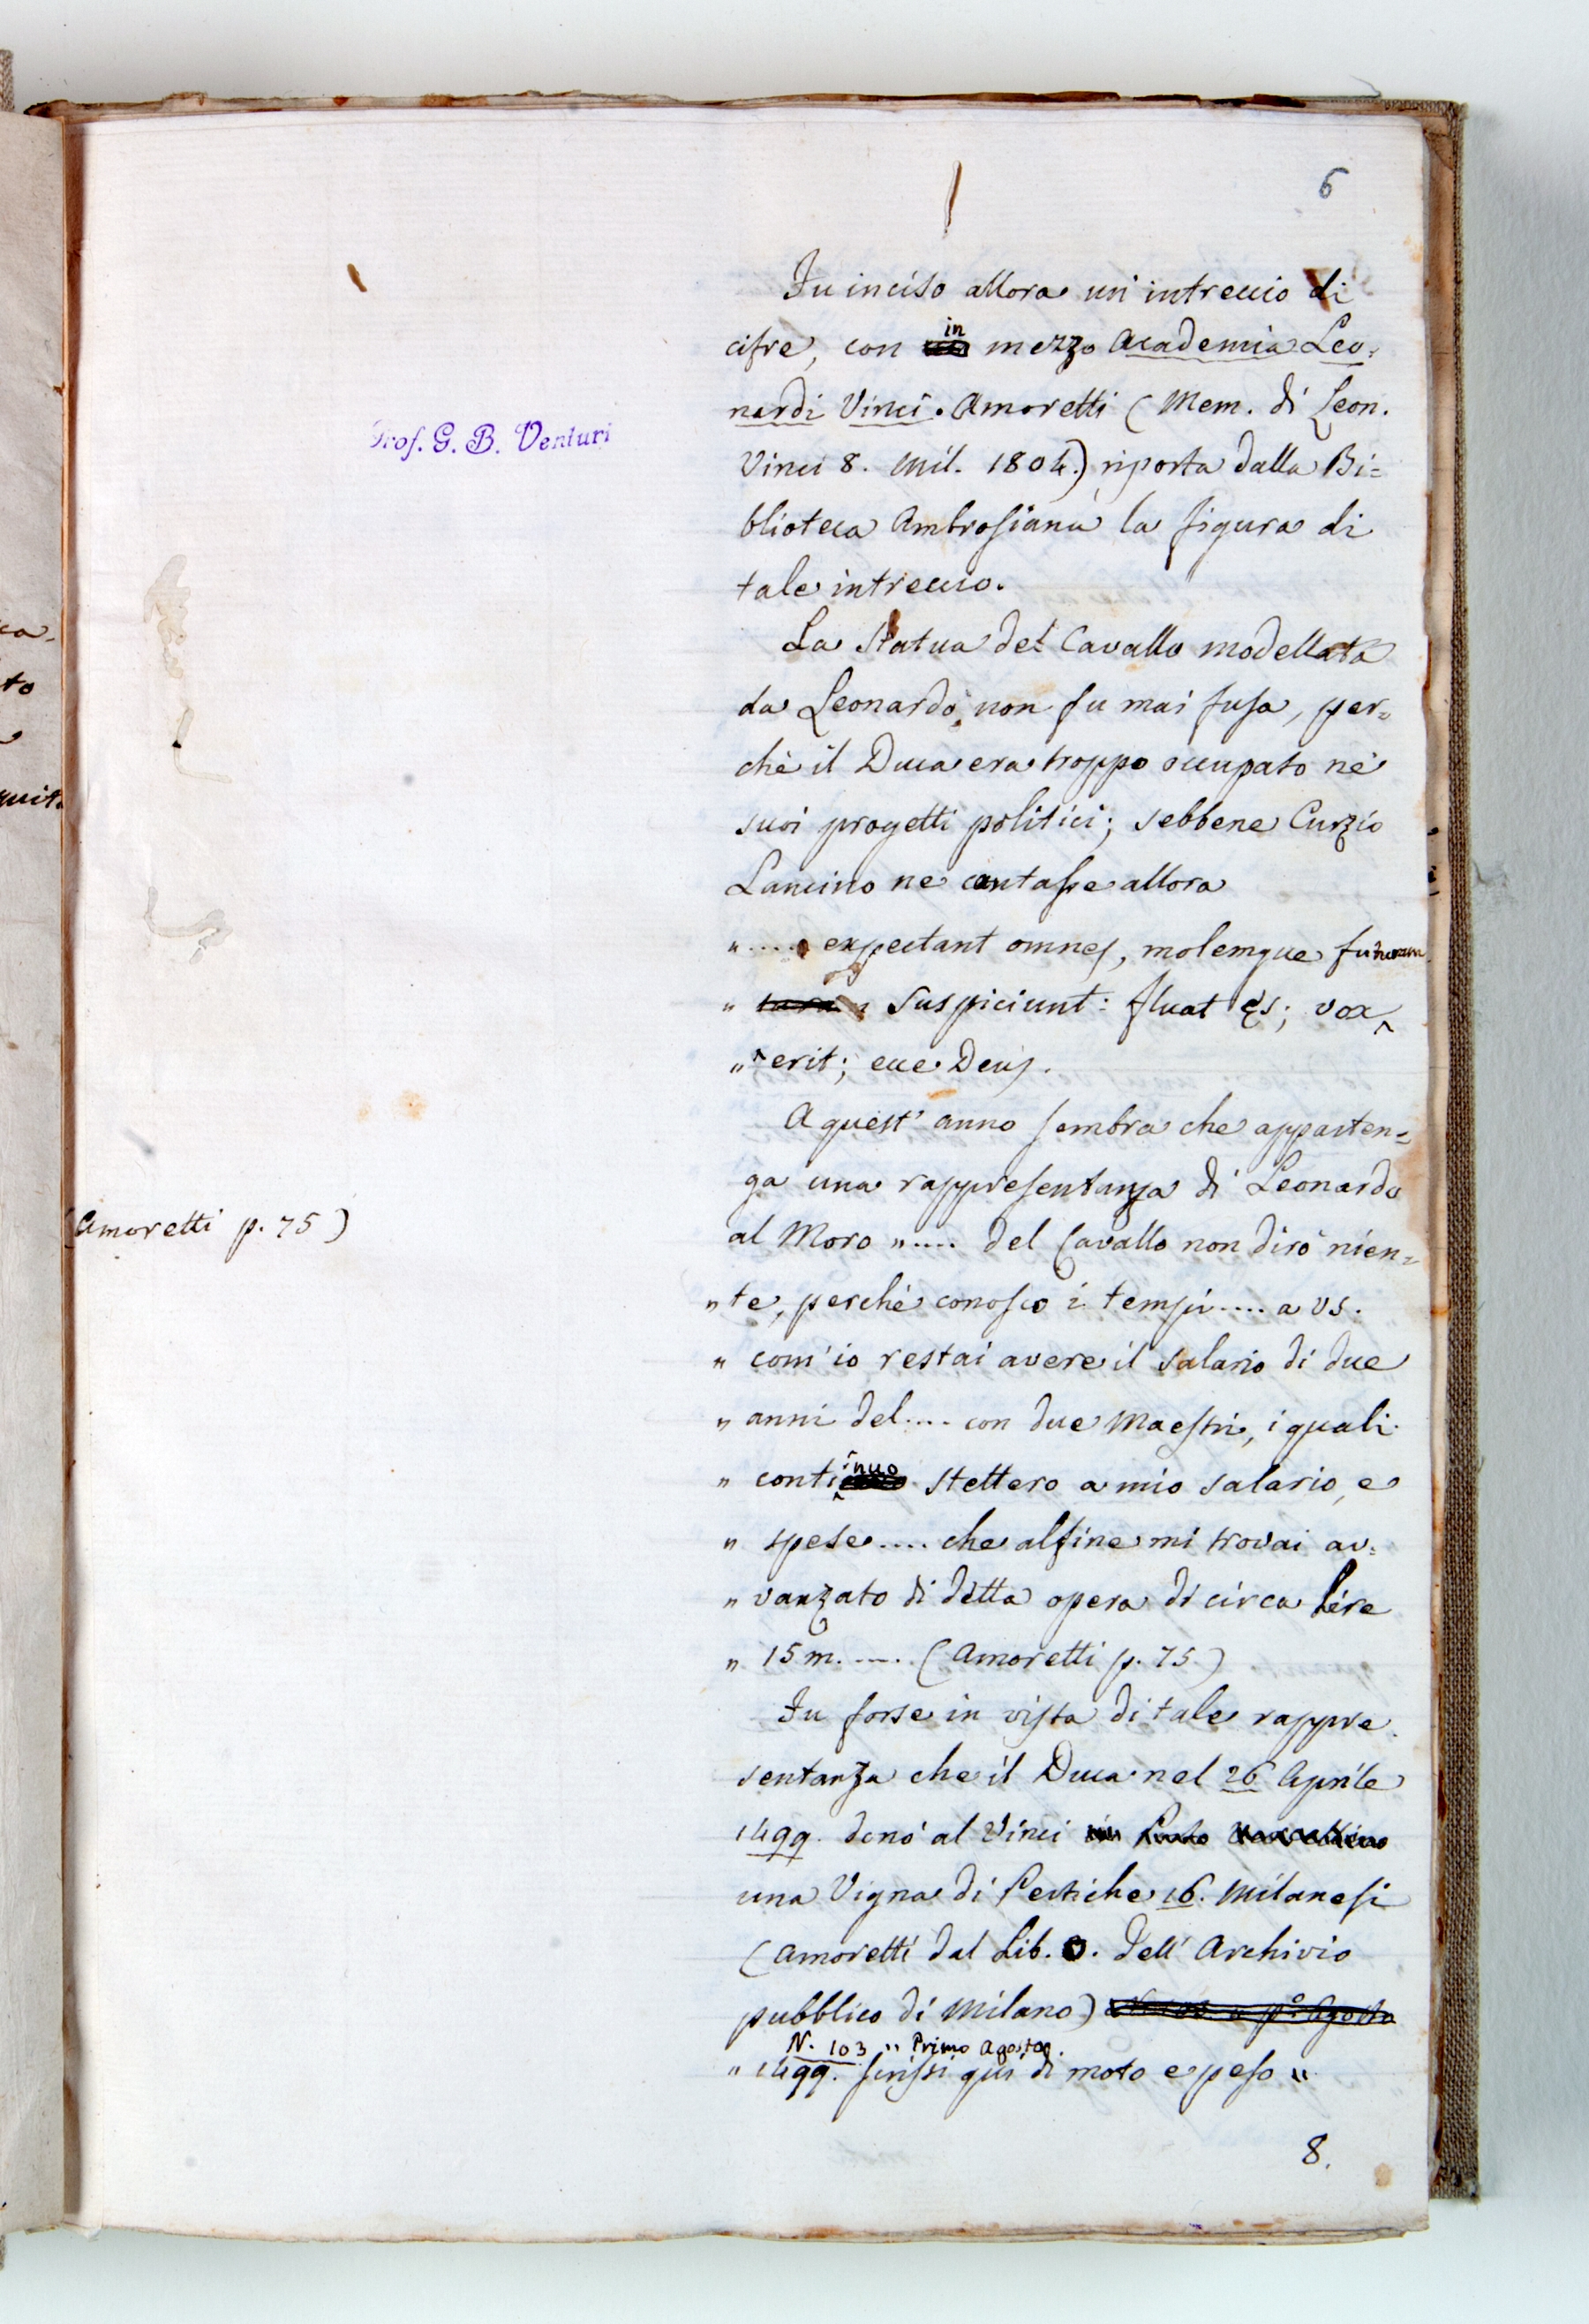 6
Fu inciso allora un' intreccio di
cifre, con in mezzo Academia Leo=
nardi Vinci. Amoretti (Mem. di Leon.
Vinci 8. Mil. 1804.) riporta dalla Bi=
blioteca Ambrosiana la figura di
tale intreccio.
La Statua del Cavallo modellata
da Leonardo, non fu mai fusa, per=
chè il Duca era troppo occupato ne'
suoi progetti politici; sebbene Curzio
Lancino ne cantasse allora
" .... expectant omnes, molemque futuram
" suspiciunt: fluat æs; vox
" erit; ecce Deus.
A quest' anno sembra che apparten=
ga una rappresentanza di Leonardo
al Moro " .... del Cavallo non dirò nien=
" te, perchè conosco i tempi .... a VS.
" com' io restai avere il salario di due
" anni del .... con due Maestri, i quali
" continuo stettero a mio salario, e
" spese .... che alfine mi trovai av=
" vanzato di ditta opera di circa lire
" 15 m. .... (Amoretti p. 75)
Fu forse in vista di tale rappre
sentanza che il Duca nel 26 Aprile
1499. donò al Vinci
una Vigna di Pertiche 16. Milanesi
(Amoretti dal Lib. O. dell' Archivio
pubblico di Milano)
N. 103 " Primo Agosto
" 1499. scrissi qui di moto e peso "
8.
Prof. G. B. Venturi
(Amoretti p. 75)
ca.
to
quit